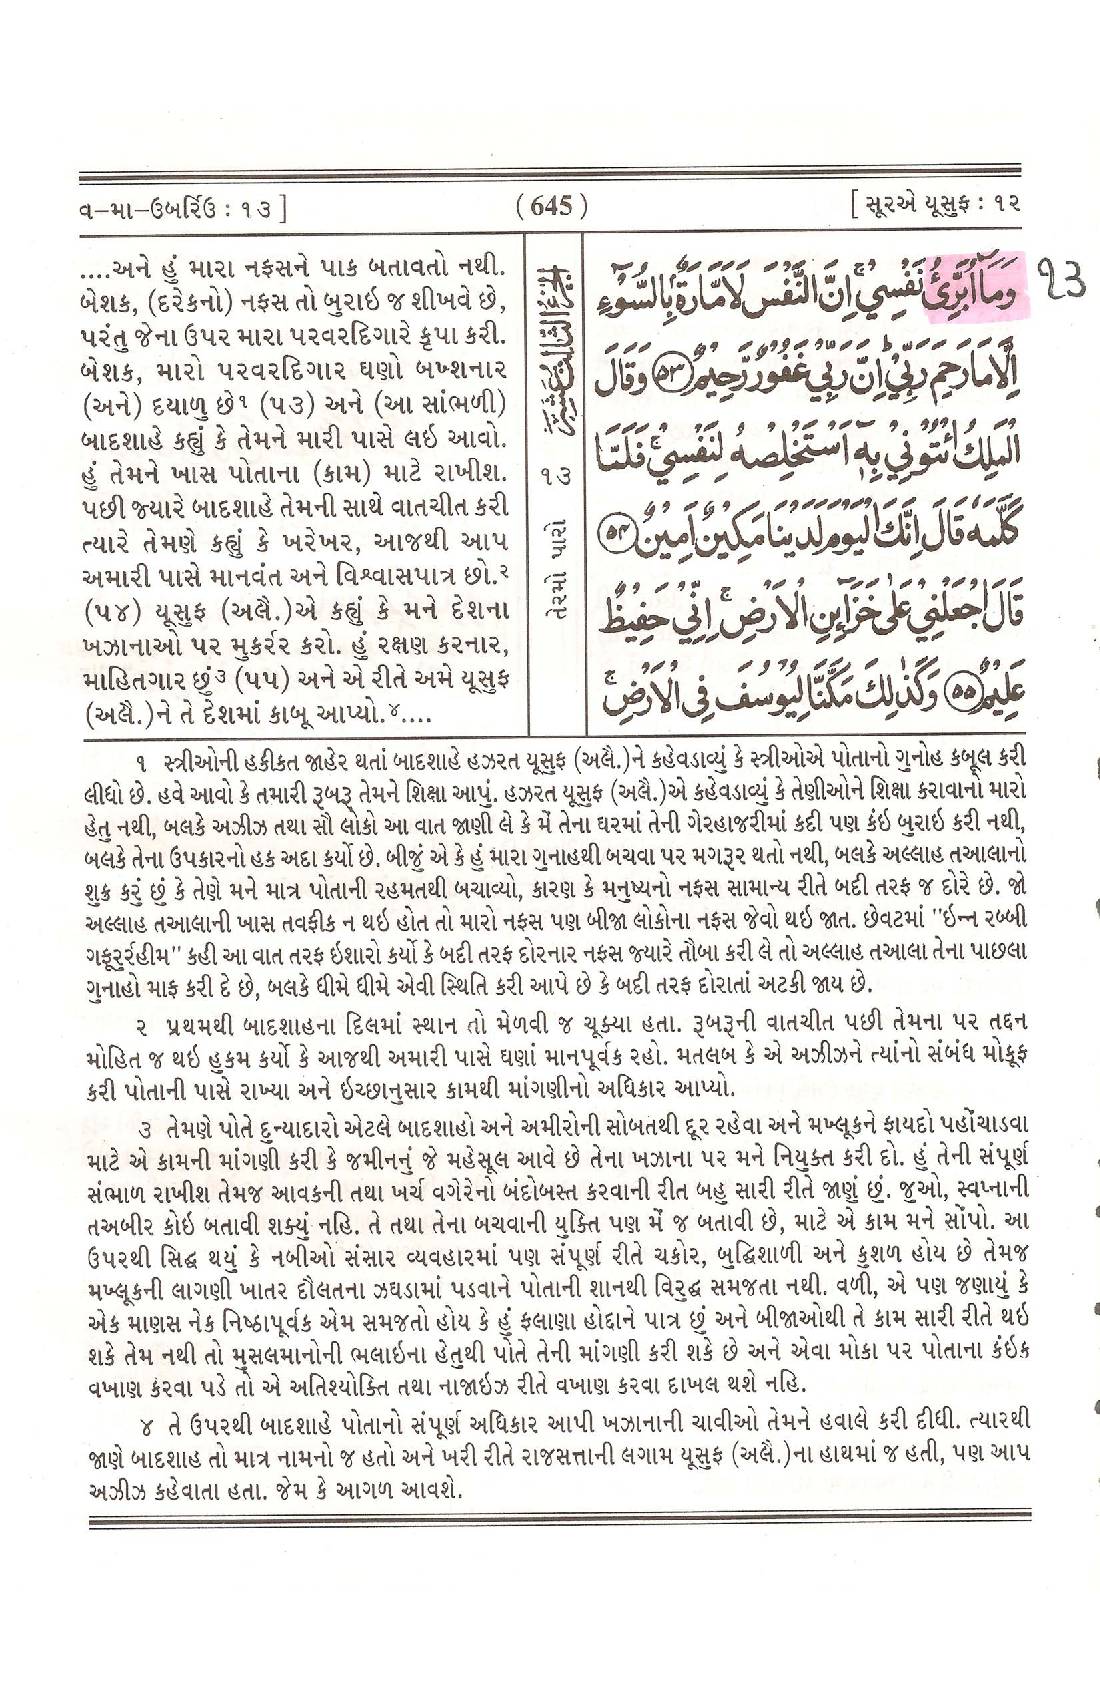 વ–મા–ઉબર્રિઉ : ૧૩ ]
( 645 )
[ સૂરએ યૂસુફ : ૧૨
....અને હું મારા નફસને પાક બતાવતો નથી.
બેશક, (દરેકનો) નફસ તો બુરાઇ જ શીખવે છે,
પરંતુ જેના ઉપર મારા પરવરદિગારે કૃપા કરી.
બેશક, મારો પરવરદિગાર ઘણો બખ્શનાર
(અને) દયાળુ છે૧ (૫૩) અને (આ સાંભળી)
બાદશાહે કહ્યું કે તેમને મારી પાસે લઇ આવો.
હું તેમને ખાસ પોતાના (કામ) માટે રાખીશ.
પછી જ્યારે બાદશાહે તેમની સાથે વાતચીત કરી
ત્યારે તેમણે કહ્યું કે ખરેખર, આજથી આપ
અમારી પાસે માનવંત અને વિશ્વાસપાત્ર છો.૨
(૫૪) યૂસુફ (અલૈ.)એ કહ્યું કે મને દેશના
ખઝાનાઓ પર મુકર્રર કરો. હું રક્ષણ કરનાર,
માહિતગાર છું૩ (૫૫) અને એ રીતે અમે યૂસુફ
(અલૈ.)ને તે દેશમાં કાબૂ આપ્યો.૪....
الجزء الثالث عشر
૧૩
તેરમો પારો
وَمَآ اُبَرِّئُ نَفْسِيْ ۚ اِنَّ النَّفْسَ لَاَمَّارَةٌۢ بِالسُّوْٓءِ
૧૩
اِلَّا مَا رَحِمَ رَبِّيْ ؕ اِنَّ رَبِّيْ غَفُوْرٌ رَّحِيْمٌ ﴿۵۳﴾ وَقَالَ
الْمَلِكُ ائْتُوْنِيْ بِهٖٓ اَسْتَخْلِصْهُ لِنَفْسِيْ ۚ فَلَمَّا
كَلَّمَهٗ قَالَ اِنَّكَ الْيَوْمَ لَدَيْنَا مَكِيْنٌ اَمِيْنٌ ﴿۵۴﴾
قَالَ اجْعَلْنِيْ عَلٰى خَزَآىِٕنِ الْاَرْضِ ۚ اِنِّيْ حَفِيْظٌ
عَلِيْمٌ ﴿۵۵﴾ وَكَذٰلِكَ مَكَّنَّا لِيُوْسُفَ فِي الْاَرْضِ ۚ
૧ સ્ત્રીઓની હકીકત જાહેર થતાં બાદશાહે હઝરત યૂસુફ (અલૈ.)ને કહેવડાવ્યું કે સ્ત્રીઓએ પોતાનો ગુનોહ કબૂલ કરી
લીધો છે. હવે આવો કે તમારી રૂબરૂ તેમને શિક્ષા આપું. હઝરત યૂસુફ (અલૈ.)એ કહેવડાવ્યું કે તેણીઓને શિક્ષા કરાવાનો મારો
હેતુ નથી, બલકે અઝીઝ તથા સૌ લોકો આ વાત જાણી લે કે મેં તેના ઘરમાં તેની ગેરહાજરીમાં કદી પણ કંઇ બુરાઇ કરી નથી,
બલકે તેના ઉપકારનો હક અદા કર્યો છે. બીજું એ કે હું મારા ગુનાહથી બચવા પર મગરૂર થતો નથી, બલકે અલ્લાહ તઆલાનો
શુક્ર કરું છું કે તેણે મને માત્ર પોતાની રહમતથી બચાવ્યો, કારણ કે મનુષ્યનો નફસ સામાન્ય રીતે બદી તરફ જ દોરે છે. જો
અલ્લાહ તઆલાની ખાસ તવફીક ન થઇ હોત તો મારો નફસ પણ બીજા લોકોના નફસ જેવો થઇ જાત. છેવટમાં "ઇન્ન રબ્બી
ગફૂરુર્રહીમ" કહી આ વાત તરફ ઇશારો કર્યો કે બદી તરફ દોરનાર નફસ જ્યારે તૌબા કરી લે તો અલ્લાહ તઆલા તેના પાછલા
ગુનાહો માફ કરી દે છે, બલકે ધીમે ધીમે એવી સ્થિતિ કરી આપે છે કે બદી તરફ દોરાતાં અટકી જાય છે.
૨ પ્રથમથી બાદશાહના દિલમાં સ્થાન તો મેળવી જ ચૂક્યા હતા. રૂબરૂની વાતચીત પછી તેમના પર તદ્દન
મોહિત જ થઇ હુકમ કર્યો કે આજથી અમારી પાસે ઘણાં માનપૂર્વક રહો. મતલબ કે એ અઝીઝને ત્યાંનો સંબંધ મોકૂફ
કરી પોતાની પાસે રાખ્યા અને ઇચ્છાનુસાર કામથી માંગણીનો અધિકાર આપ્યો.
૩ તેમણે પોતે દુન્યાદારો એટલે બાદશાહો અને અમીરોની સોબતથી દૂર રહેવા અને મખ્લૂકને ફાયદો પહોંચાડવા
માટે એ કામની માંગણી કરી કે જમીનનું જે મહેસૂલ આવે છે તેના ખઝાના પર મને નિયુક્ત કરી દો. હું તેની સંપૂર્ણ
સંભાળ રાખીશ તેમજ આવકની તથા ખર્ચ વગેરેનો બંદોબસ્ત કરવાની રીત બહુ સારી રીતે જાણું છું. જુઓ, સ્વપ્નાની
તઅબીર કોઇ બતાવી શક્યું નહિ. તે તથા તેના બચવાની યુક્તિ પણ મેં જ બતાવી છે, માટે એ કામ મને સોંપો. આ
ઉપરથી સિદ્ધ થયું કે નબીઓ સંસાર વ્યવહારમાં પણ સંપૂર્ણ રીતે ચકોર, બુદ્ધિશાળી અને કુશળ હોય છે તેમજ
મખ્લૂકની લાગણી ખાતર દૌલતના ઝઘડામાં પડવાને પોતાની શાનથી વિરુદ્ધ સમજતા નથી. વળી, એ પણ જણાયું કે
એક માણસ નેક નિષ્ઠાપૂર્વક એમ સમજતો હોય કે હું ફલાણા હોદ્દાને પાત્ર છું અને બીજાઓથી તે કામ સારી રીતે થઇ
શકે તેમ નથી તો મુસલમાનોની ભલાઇના હેતુથી પોતે તેની માંગણી કરી શકે છે અને એવા મોકા પર પોતાના કંઇક
વખાણ કરવા પડે તો એ અતિશ્યોક્તિ તથા નાજાઇઝ રીતે વખાણ કરવા દાખલ થશે નહિ.
૪ તે ઉપરથી બાદશાહે પોતાનો સંપૂર્ણ અધિકાર આપી ખઝાનાની ચાવીઓ તેમને હવાલે કરી દીધી. ત્યારથી
જાણે બાદશાહ તો માત્ર નામનો જ હતો અને ખરી રીતે રાજસત્તાની લગામ યૂસુફ (અલૈ.)ના હાથમાં જ હતી, પણ આપ
અઝીઝ કહેવાતા હતા. જેમ કે આગળ આવશે.